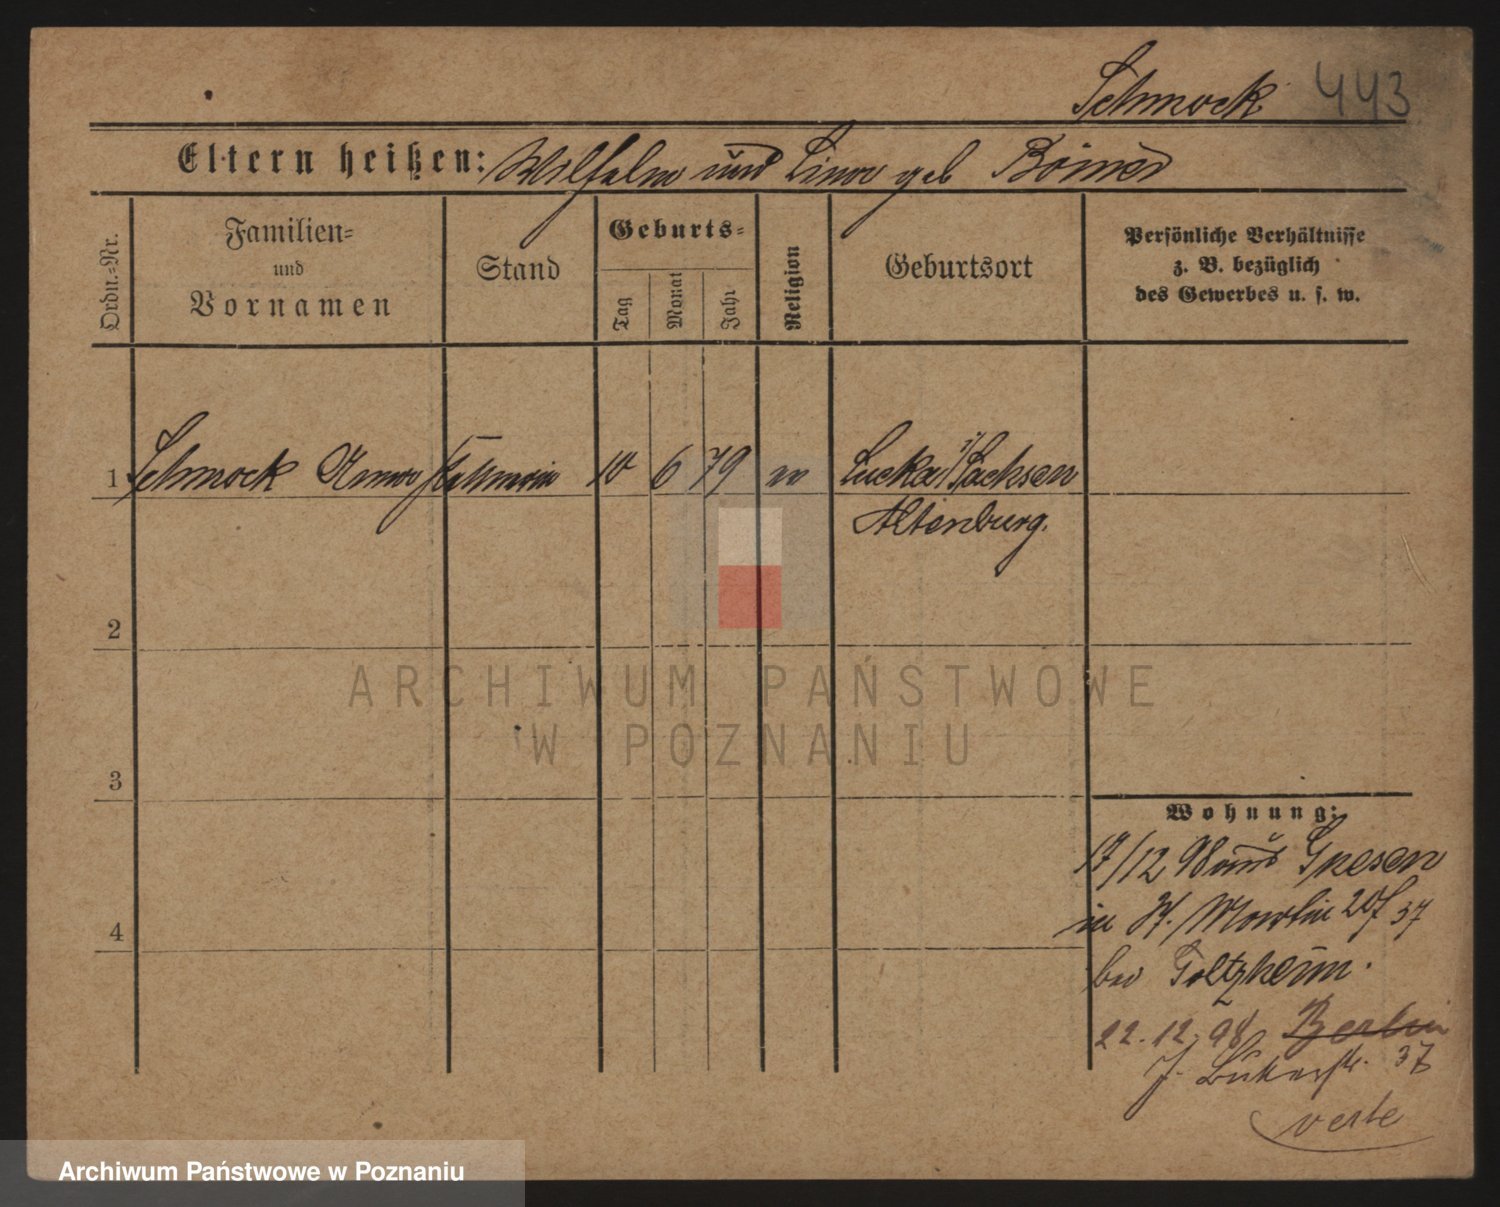 Schmock 443
Eltern heißen: Wilhelm und Lina geb Börner
Ordn.-Nr.
Familien-
und
Vornamen
Stand
Geburts-
Tag
Monat
Jahr
Religion
Geburtsort
Persönliche Verhältnisse
z. B. bezüglich
des Gewerbes u. s. w.
1 Schmock Anna Kellnerin 10 6 79 Lucka Sachsen
Altenburg.
2
ARCHIWUM PAŃSTWOWE
W POZNANIU
3
Wohnung:
17/12 98 aus Gnesen
in St. Martin 37
4
bei
22.12.98 Berlin
37
verte
Archiwum Państwowe w Poznaniu